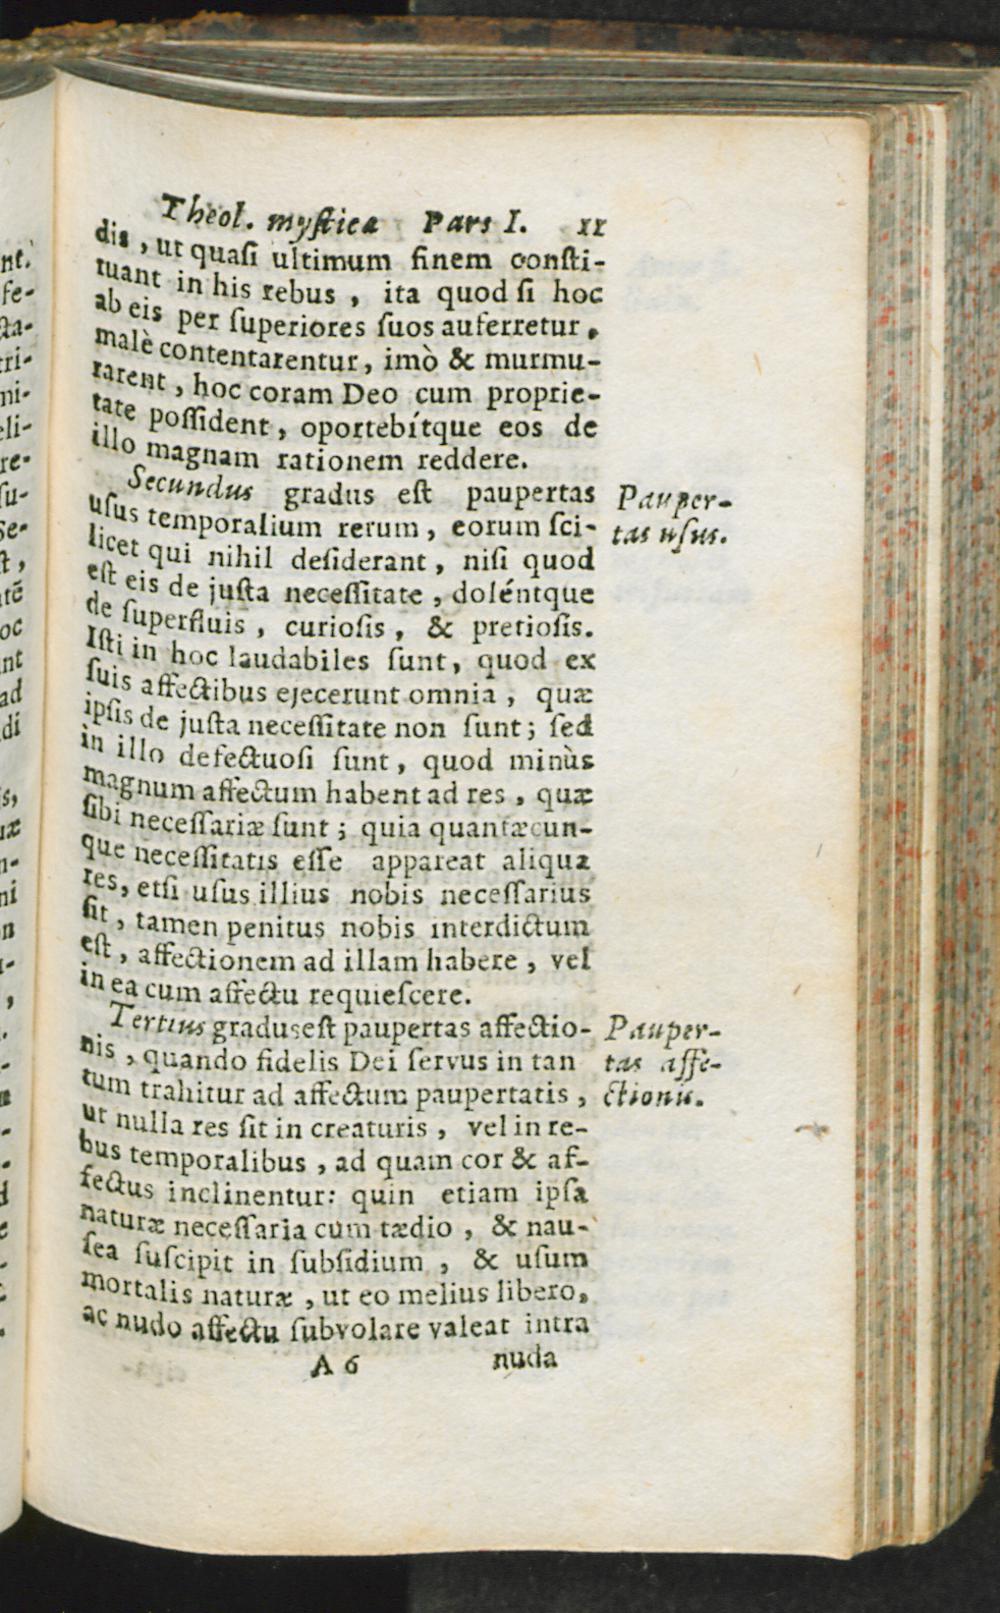 Theol. mystica Pars I. 11
dis, ut quasi ultimum finem consti-
tuant in his rebus, ita quod si hoc
ab eis per superiores suos auferretur,
malè contentarentur, imò & murmu-
rarent, hoc coram Deo cum proprie-
tate possident, oportebítque eos de
illo magnam rationem reddere.
Secundus gradus est paupertas
usus temporalium rerum, eorum sci-
licet qui nihil desiderant, nisi quod
est eis de justa necessitate, doléntque
de superfluis, curiosis, & pretiosis.
Isti in hoc laudabiles sunt, quod ex
suis affectibus ejecerunt omnia, quæ
ipsis de justa necessitate non sunt; sed
in illo defectuosi sunt, quod minùs
magnum affectum habent ad res, quæ
sibi necessariæ sunt; quia quantæcun-
que necessitatis esse appareat aliqua
res, etsi usus illius nobis necessarius
sit, tamen penitus nobis interdictum
est, affectionem ad illam habere, vel
in ea cum affectu requiescere.
Tertius gradus est paupertas affectio-
nis, quando fidelis Dei servus in tan
tum trahitur ad affectum paupertatis,
ut nulla res sit in creaturis, vel in re-
bus temporalibus, ad quam cor & af-
fectus inclinentur: quin etiam ipsa
naturæ necessaria cum tædio, & nau-
sea suscipit in subsidium, & usum
mortalis naturæ, ut eo melius libero,
ac nudo affectu subvolare valeat intra
A 6 nuda
Pauper-
tas usus.
Pauper-
tas affe-
ctionis.